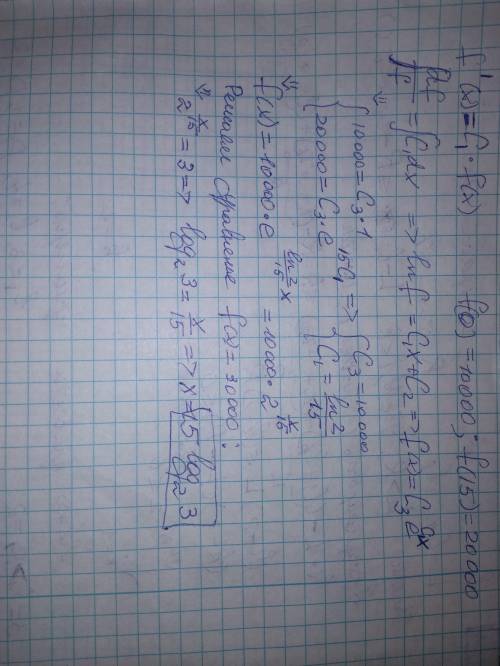 f'(x) = C₁·f(x)   f(0) = 10000; f(15) = 20000
∫df/f = ∫C₁dx => ln f = C₁x + C₂ => f(x) = C₃e^(C₁x)
⇓
{10000 = C₃·1
{20000 = C₃·e^(15C₁) => {C₃ = 10000
{C₁ = ln2/15
⇓
f(x) = 10000·e^(ln2/15 x) = 10000·2^(x/15)
Решаем уравнение f(x) = 30000:
⇓
2^(x/15) = 3 => log₂3 = x/15 => x = 15 log₂3